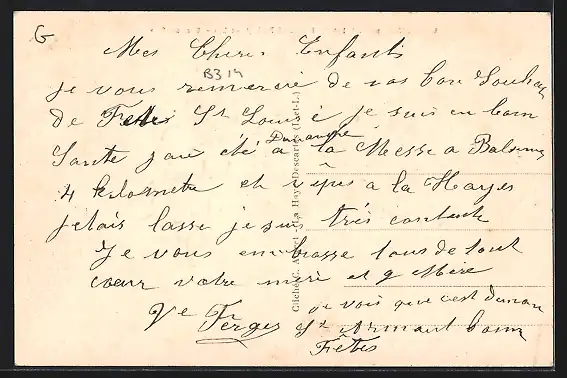 G
Mes Chers Enfants
B314
je vous remercie de vos bon Souhai
de Fetes St Louis é je suis en bon
Dimanche
Santé jai été a la Messe a Balesmes
4 kilometre et vepes a la Hayes
jetais lasse je suis très contente
Je vous embrasse tous de tout
cœur votre mère et g Mère
je vois que c'est deman
Ve Ferges St Armant bonn
Fêtes
Cliché C. A La Haye-Descartes (I.-et-L.)